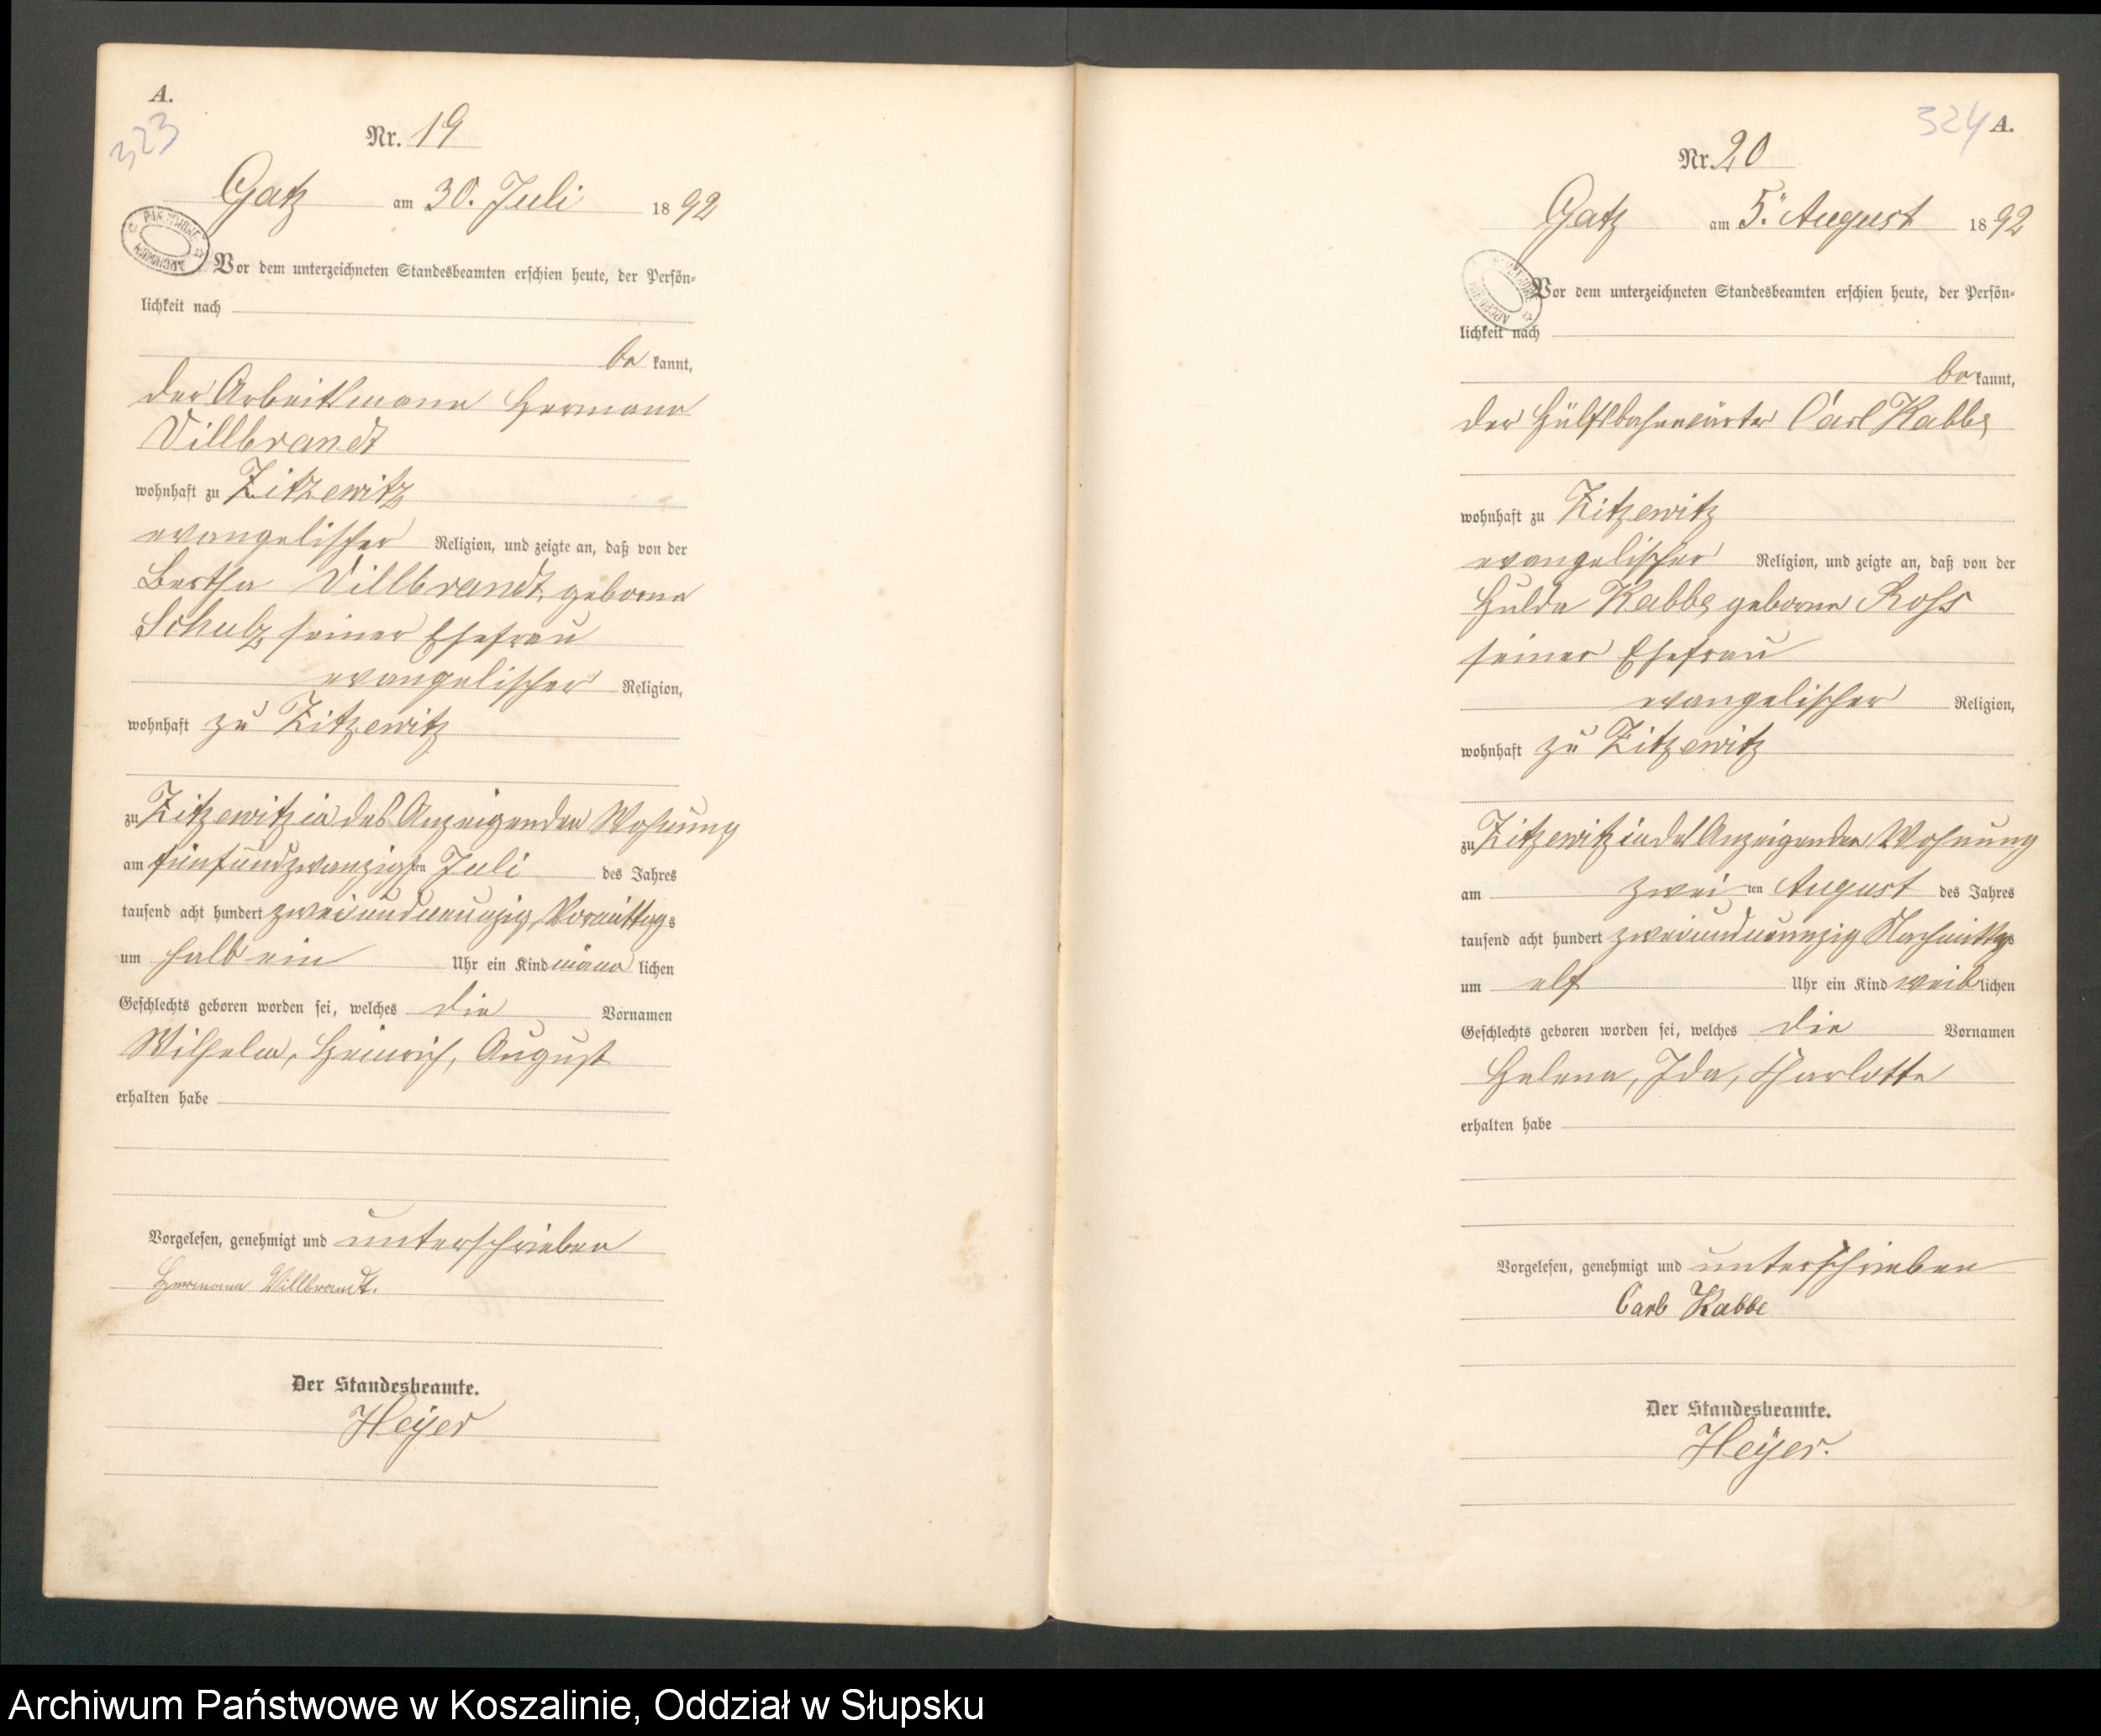 A.
323
Nr. 19
Gatz am 30. Juli 1892
Vor dem unterzeichneten Standesbeamten erschien heute, der Persön-
lichkeit nach
be kannt,
der Arbeitsmann Hermann
Villbrandt
wohnhaft zu Zitzewitz
evangelischer Religion, und zeigte an, daß von der
Bertha Villbrandt, geborne
Schulz seiner Ehefrau
evangelischer Religion,
wohnhaft zu Zitzewitz
zu Zitzewitz in des Anzeigenden Wohnung
am fünfundzwanzigsten Juli des Jahres
tausend acht hundert zweiundneunzig, Vormittags
um halb ein Uhr ein Kind männ lichen
Geschlechts geboren worden sei, welches die Vornamen
Wilhelm, Heinrich, August
erhalten habe
Vorgelesen, genehmigt und unterschrieben
Hermann Villbrandt.
Der Standesbeamte.
Heyer
324 A.
Nr. 20
Gatz am 5. August 1892
Vor dem unterzeichneten Standesbeamten erschien heute, der Persön-
lichkeit nach
be kannt,
der Hülfsbahnwärter Carl Kabbe
wohnhaft zu Zitzewitz
evangelischer Religion, und zeigte an, daß von der
Hulda Kabbe geborne Ross
seiner Ehefrau
evangelischer Religion,
wohnhaft zu Zitzewitz
zu Zitzewitz in des Anzeigenden Wohnung
am zwei ten August des Jahres
tausend acht hundert zweiundneunzig Nachmittags
um elf Uhr ein Kind weib lichen
Geschlechts geboren worden sei, welches die Vornamen
Helena, Ida, Charlotte
erhalten habe
Vorgelesen, genehmigt und unterschrieben
Carl Kabbe
Der Standesbeamte.
Heyer.
Archiwum Państwowe w Koszalinie, Oddział w Słupsku